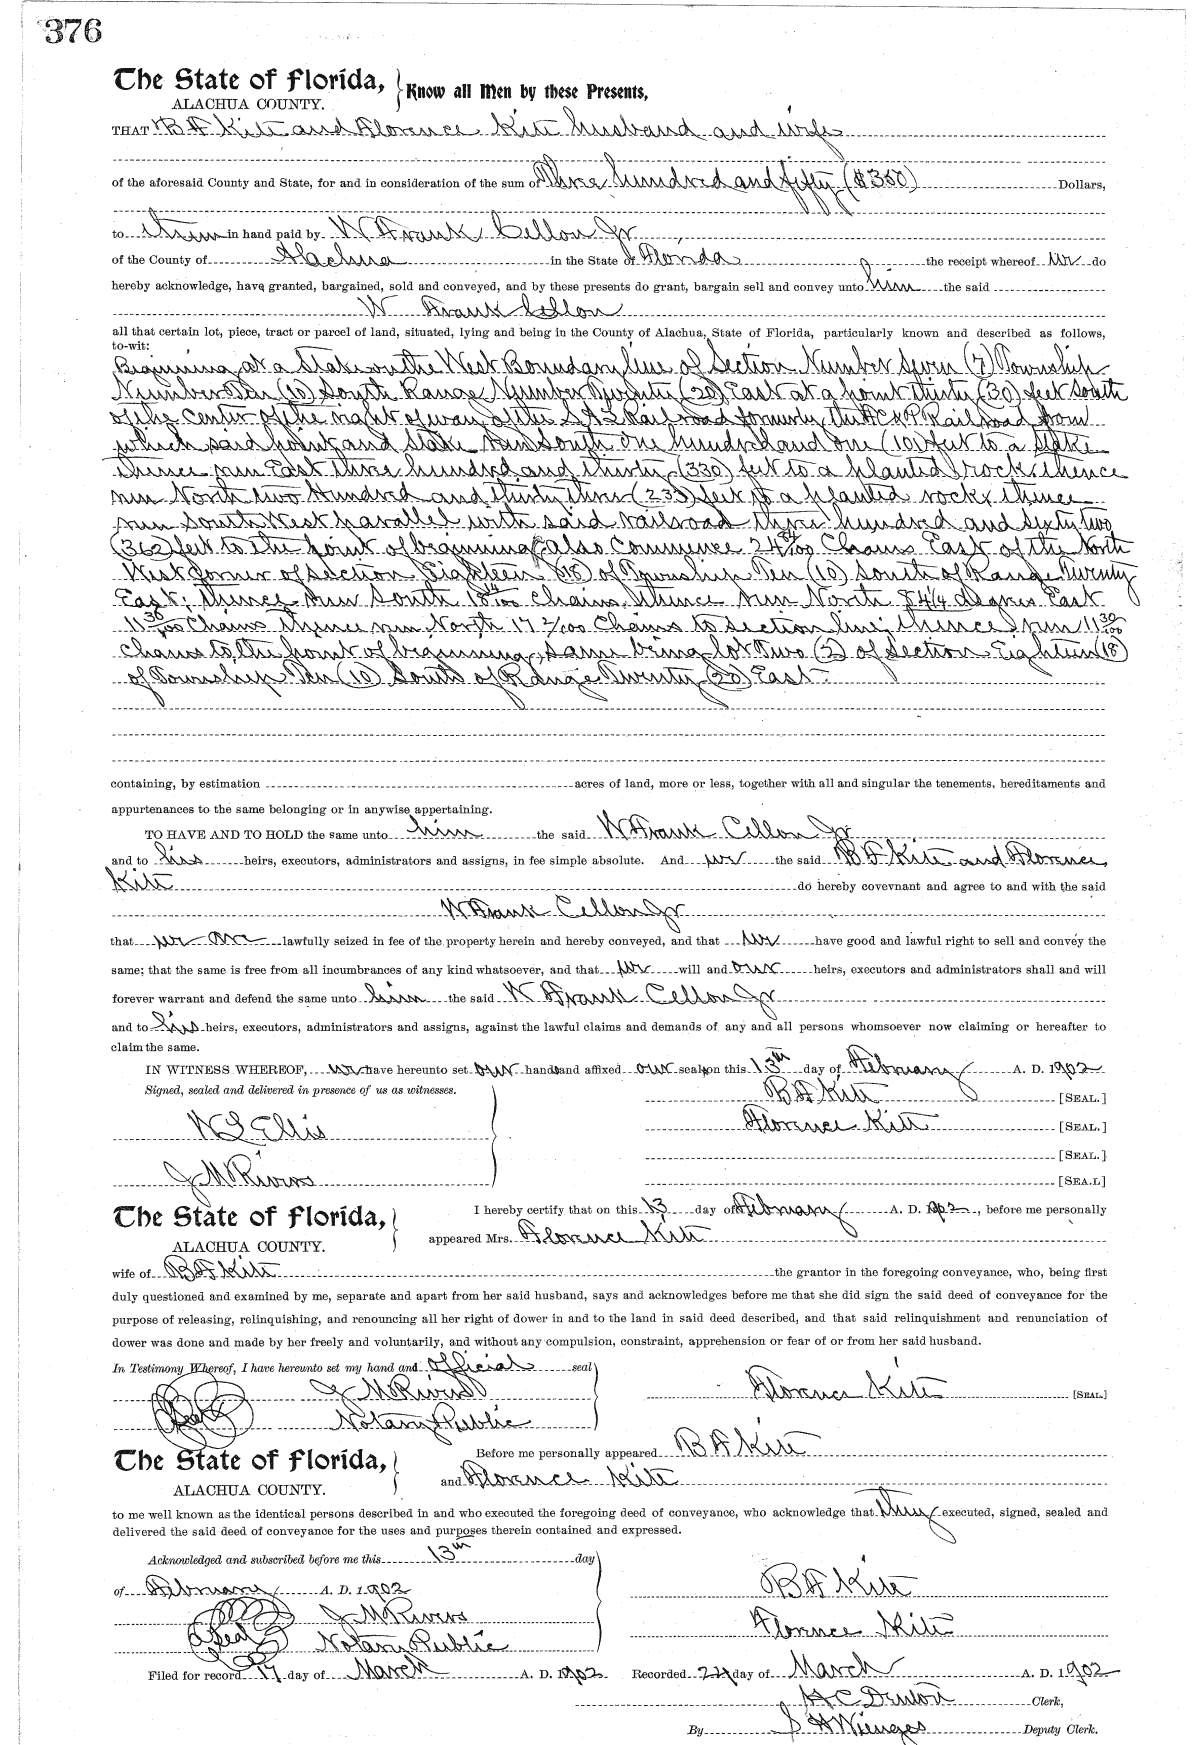 376
The State of Florida, Know all Men by these Presents,
ALACHUA COUNTY.
THAT B F Kite and Florence Kite husband and wife
of the aforesaid County and State, for and in consideration of the sum of Three hundred and fifty ($350) Dollars,
to them in hand paid by W Frank Cellon Jr
of the County of Alachua in the State of Florida the receipt whereof we do
hereby acknowledge, have granted, bargained, sold and conveyed, and by these presents do grant, bargain sell and convey unto him the said
W Frank Cellon
all that certain lot, piece, tract or parcel of land, situated, lying and being in the County of Alachua, State of Florida, particularly known and described as follows,
to-wit:
Beginning at a Stake on the West Boundary line of Section Number Seven (7) Township
Number Ten (10) South Range Number Twenty (20) East at a point thirty (30) feet South
of the center of the right of way of the S A L Railroad formerly the F C & P Railroad from
which said point and Stake run South one hundred and one (101) feet to a Stake
thence run East three hundred and thirty (330) feet to a planted rock, thence
run North two Hundred and thirty three (233) feet to a planted rock, thence
run South West parallel with said railroad three hundred and sixty two
(362) feet to the point of beginning, also Commence 24 84/100 Chains East of the North
West corner of section Eighteen (18) of Township Ten (10) South of Range Twenty
East; thence run South 18 4/100 chains, thence run North 84 1/4 degrees East
11 38/100 Chains thence run North 17 2/100 Chains to section line; thence run 11 30/100
chains to the point of beginning, same being lot Two (2) of Section Eighteen (18)
of Township Ten (10) South of Range Twenty (20) East.
containing, by estimation acres of land, more or less, together with all and singular the tenements, hereditaments and
appurtenances to the same belonging or in anywise appertaining.
TO HAVE AND TO HOLD the same unto him the said W Frank Cellon Jr
and to his heirs, executors, administrators and assigns, in fee simple absolute. And we the said B F Kite and Florence
Kite do hereby covevnant and agree to and with the said
W Frank Cellon Jr
that we are lawfully seized in fee of the property herein and hereby conveyed, and that we have good and lawful right to sell and convey the
same; that the same is free from all incumbrances of any kind whatsoever, and that we will and our heirs, executors and administrators shall and will
forever warrant and defend the same unto him the said W Frank Cellon Jr
and to his heirs, executors, administrators and assigns, against the lawful claims and demands of any and all persons whomsoever now claiming or hereafter to
claim the same.
IN WITNESS WHEREOF, we have hereunto set our hands and affixed our seals on this 13th day of February A. D. 1902
Signed, sealed and delivered in presence of us as witnesses. B F Kite [SEAL.]
W S Ellis Florence Kite [SEAL.]
[SEAL.]
J M Rivers [SEA.L]
The State of Florida, I hereby certify that on this 13 day of February A. D. 1902, before me personally
ALACHUA COUNTY. appeared Mrs. Florence Kite
wife of B F Kite the grantor in the foregoing conveyance, who, being first
duly questioned and examined by me, separate and apart from her said husband, says and acknowledges before me that she did sign the said deed of conveyance for the
purpose of releasing, relinquishing, and renouncing all her right of dower in and to the land in said deed described, and that said relinquishment and renunciation of
dower was done and made by her freely and voluntarily, and without any compulsion, constraint, apprehension or fear of or from her said husband.
In Testimony Whereof, I have hereunto set my hand and official seal
J M Rivers Florence Kite [SEAL]
Seal Notary Public
The State of Florida, Before me personally appeared B F Kite
ALACHUA COUNTY. and Florence Kite
to me well known as the identical persons described in and who executed the foregoing deed of conveyance, who acknowledge that they executed, signed, sealed and
delivered the said deed of conveyance for the uses and purposes therein contained and expressed.
Acknowledged and subscribed before me this 13th day
of February A. D. 1902 B F Kite
J M Rivers Florence Kite
Seal Notary Public
Filed for record 17 day of March A. D. 1902 Recorded 24 day of March A. D. 1902
H C Denton Clerk,
By S H Wienges Deputy Clerk.